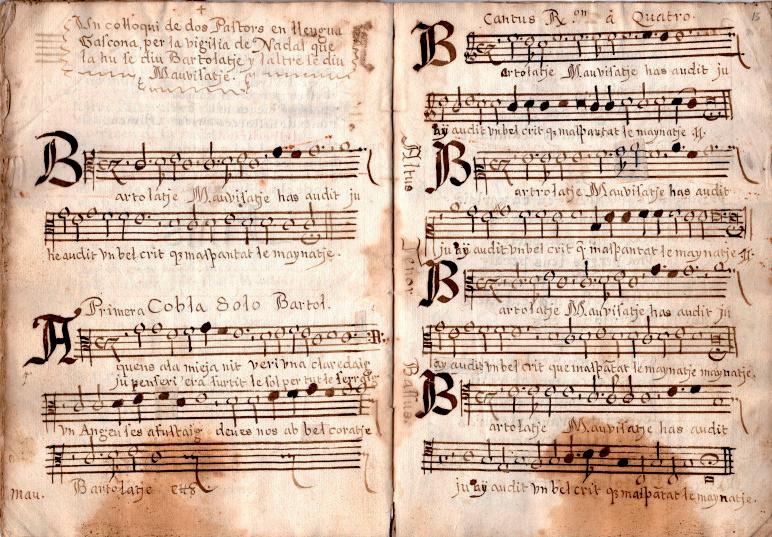 Un colloqui de dos Pastors en llengua
Gascona, per la vigilia de Nadal que
la hu se diu Bartolatje y laltre se diu
Mauvisatje.
Bartolatje Mauvisatje has audit ju
he audit vn bel crit q̄ maspantat le maynatje.
Primera Cobla Solo Bartol.
Aquens ala mieja nit veri vna claredaig
ju penseri era surtit le sol per tut le
vn Angeu ses deues nos ab bel coratje
Bartolatje
Mau.
Cantus R on à Quatro.
15
Bartolatje Mauvisatje has audit ju
ay audit vn bel crit q̄ maspantat le maynatje ij.
Altus
Bartrolatje Mauvisatje has audit
ju ay audit vn bel crit q̄ maspantat le maynatje ij.
Tenor
Bartolatje Mauvisatje has audit ju
ay audit vn bel crit que maspātat le maynatje maynatje.
Bassus
Bartolatje Mauvisatje has audit
ju aÿ audit vn bel crit q̄ maspātat le maynatje.